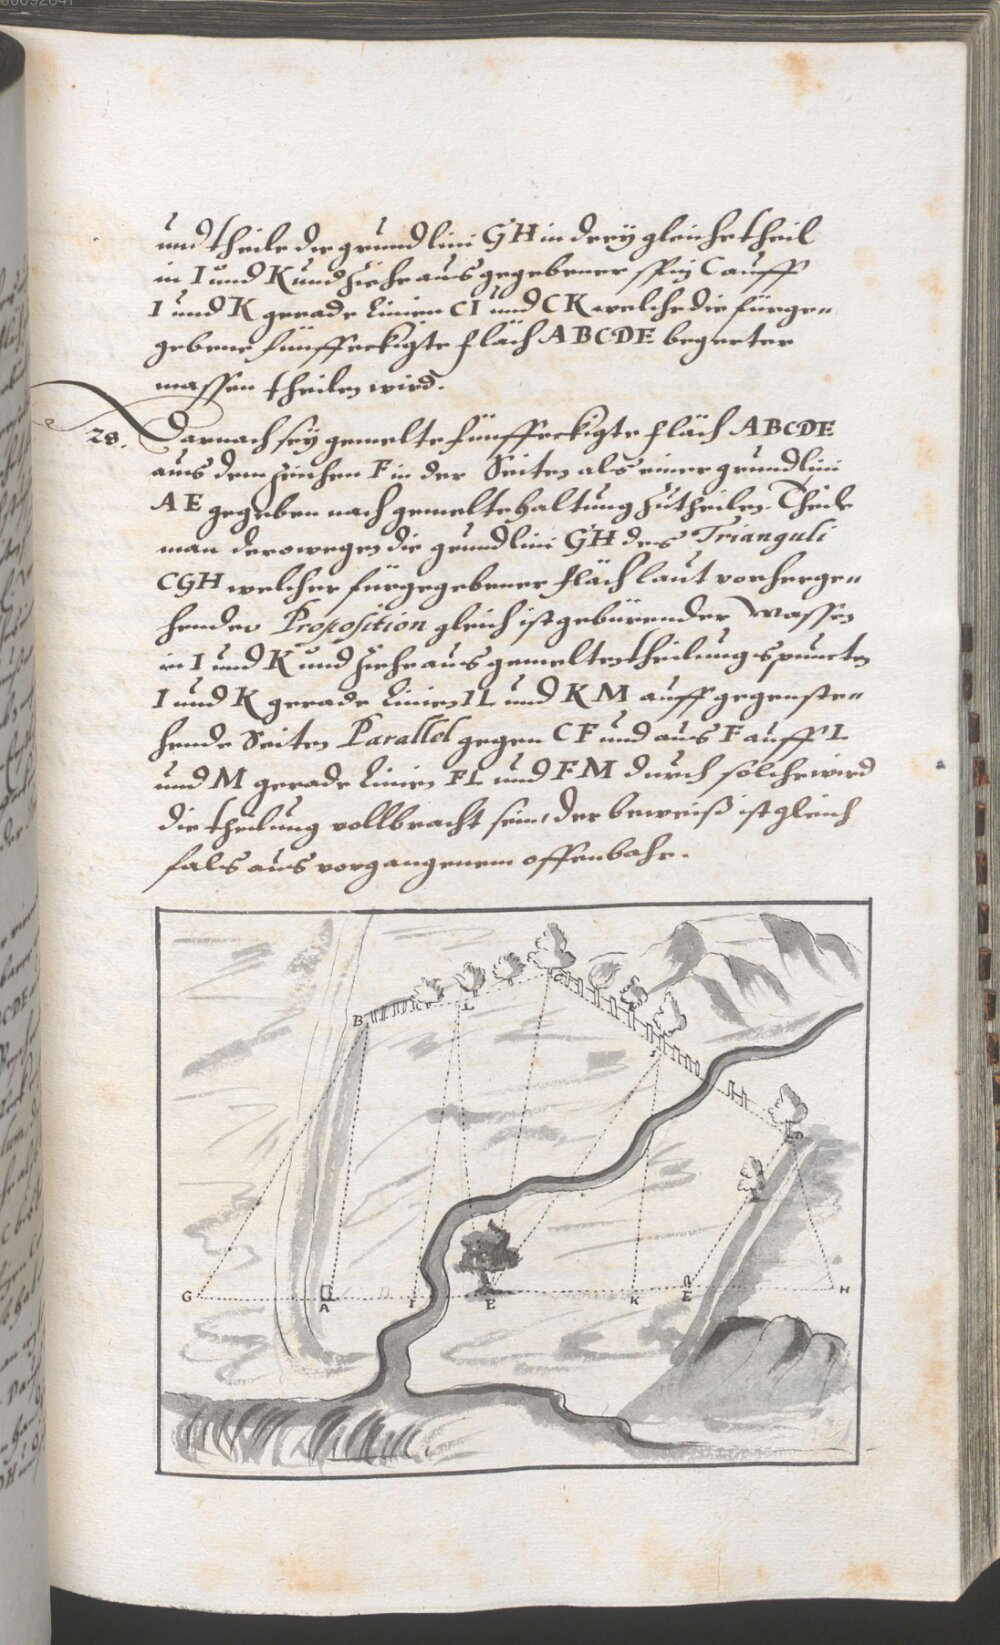 und theile die grundlini GH in drey gleiche theil
in I und K und ziehe aus gegebener spitz C auff
I und K gerade Linien CI und CK welche die fürge=
gebene fünffeckigte fläch ABCDE begerter
massen theilen wird.
28. Darnach sey gemelte fünffeckigte fläch ABCDE
aus dem zeichen F in der Seiten als einer grundlini
AE gegeben nach gemelte haltung zutheilen. Theile
man derowegen die grundlini GH des Trianguli
CGH welcher fürgegebener fläch laut vorherge=
hender Proposition gleich ist gebürender massen
in I und K und ziehe aus gemelten theilungspuncten
I und K gerade Linien IL und KM auff gegenste=
hende Seiten Parallel gegen CF und aus F auff L
und M gerade Linien FL und FM durch solche wird
die theilung vollbracht sein, der beweiß ist gleich
fals aus vorgangenem offenbahr.
B
L
C
D
G
A
I
E
K
E
H